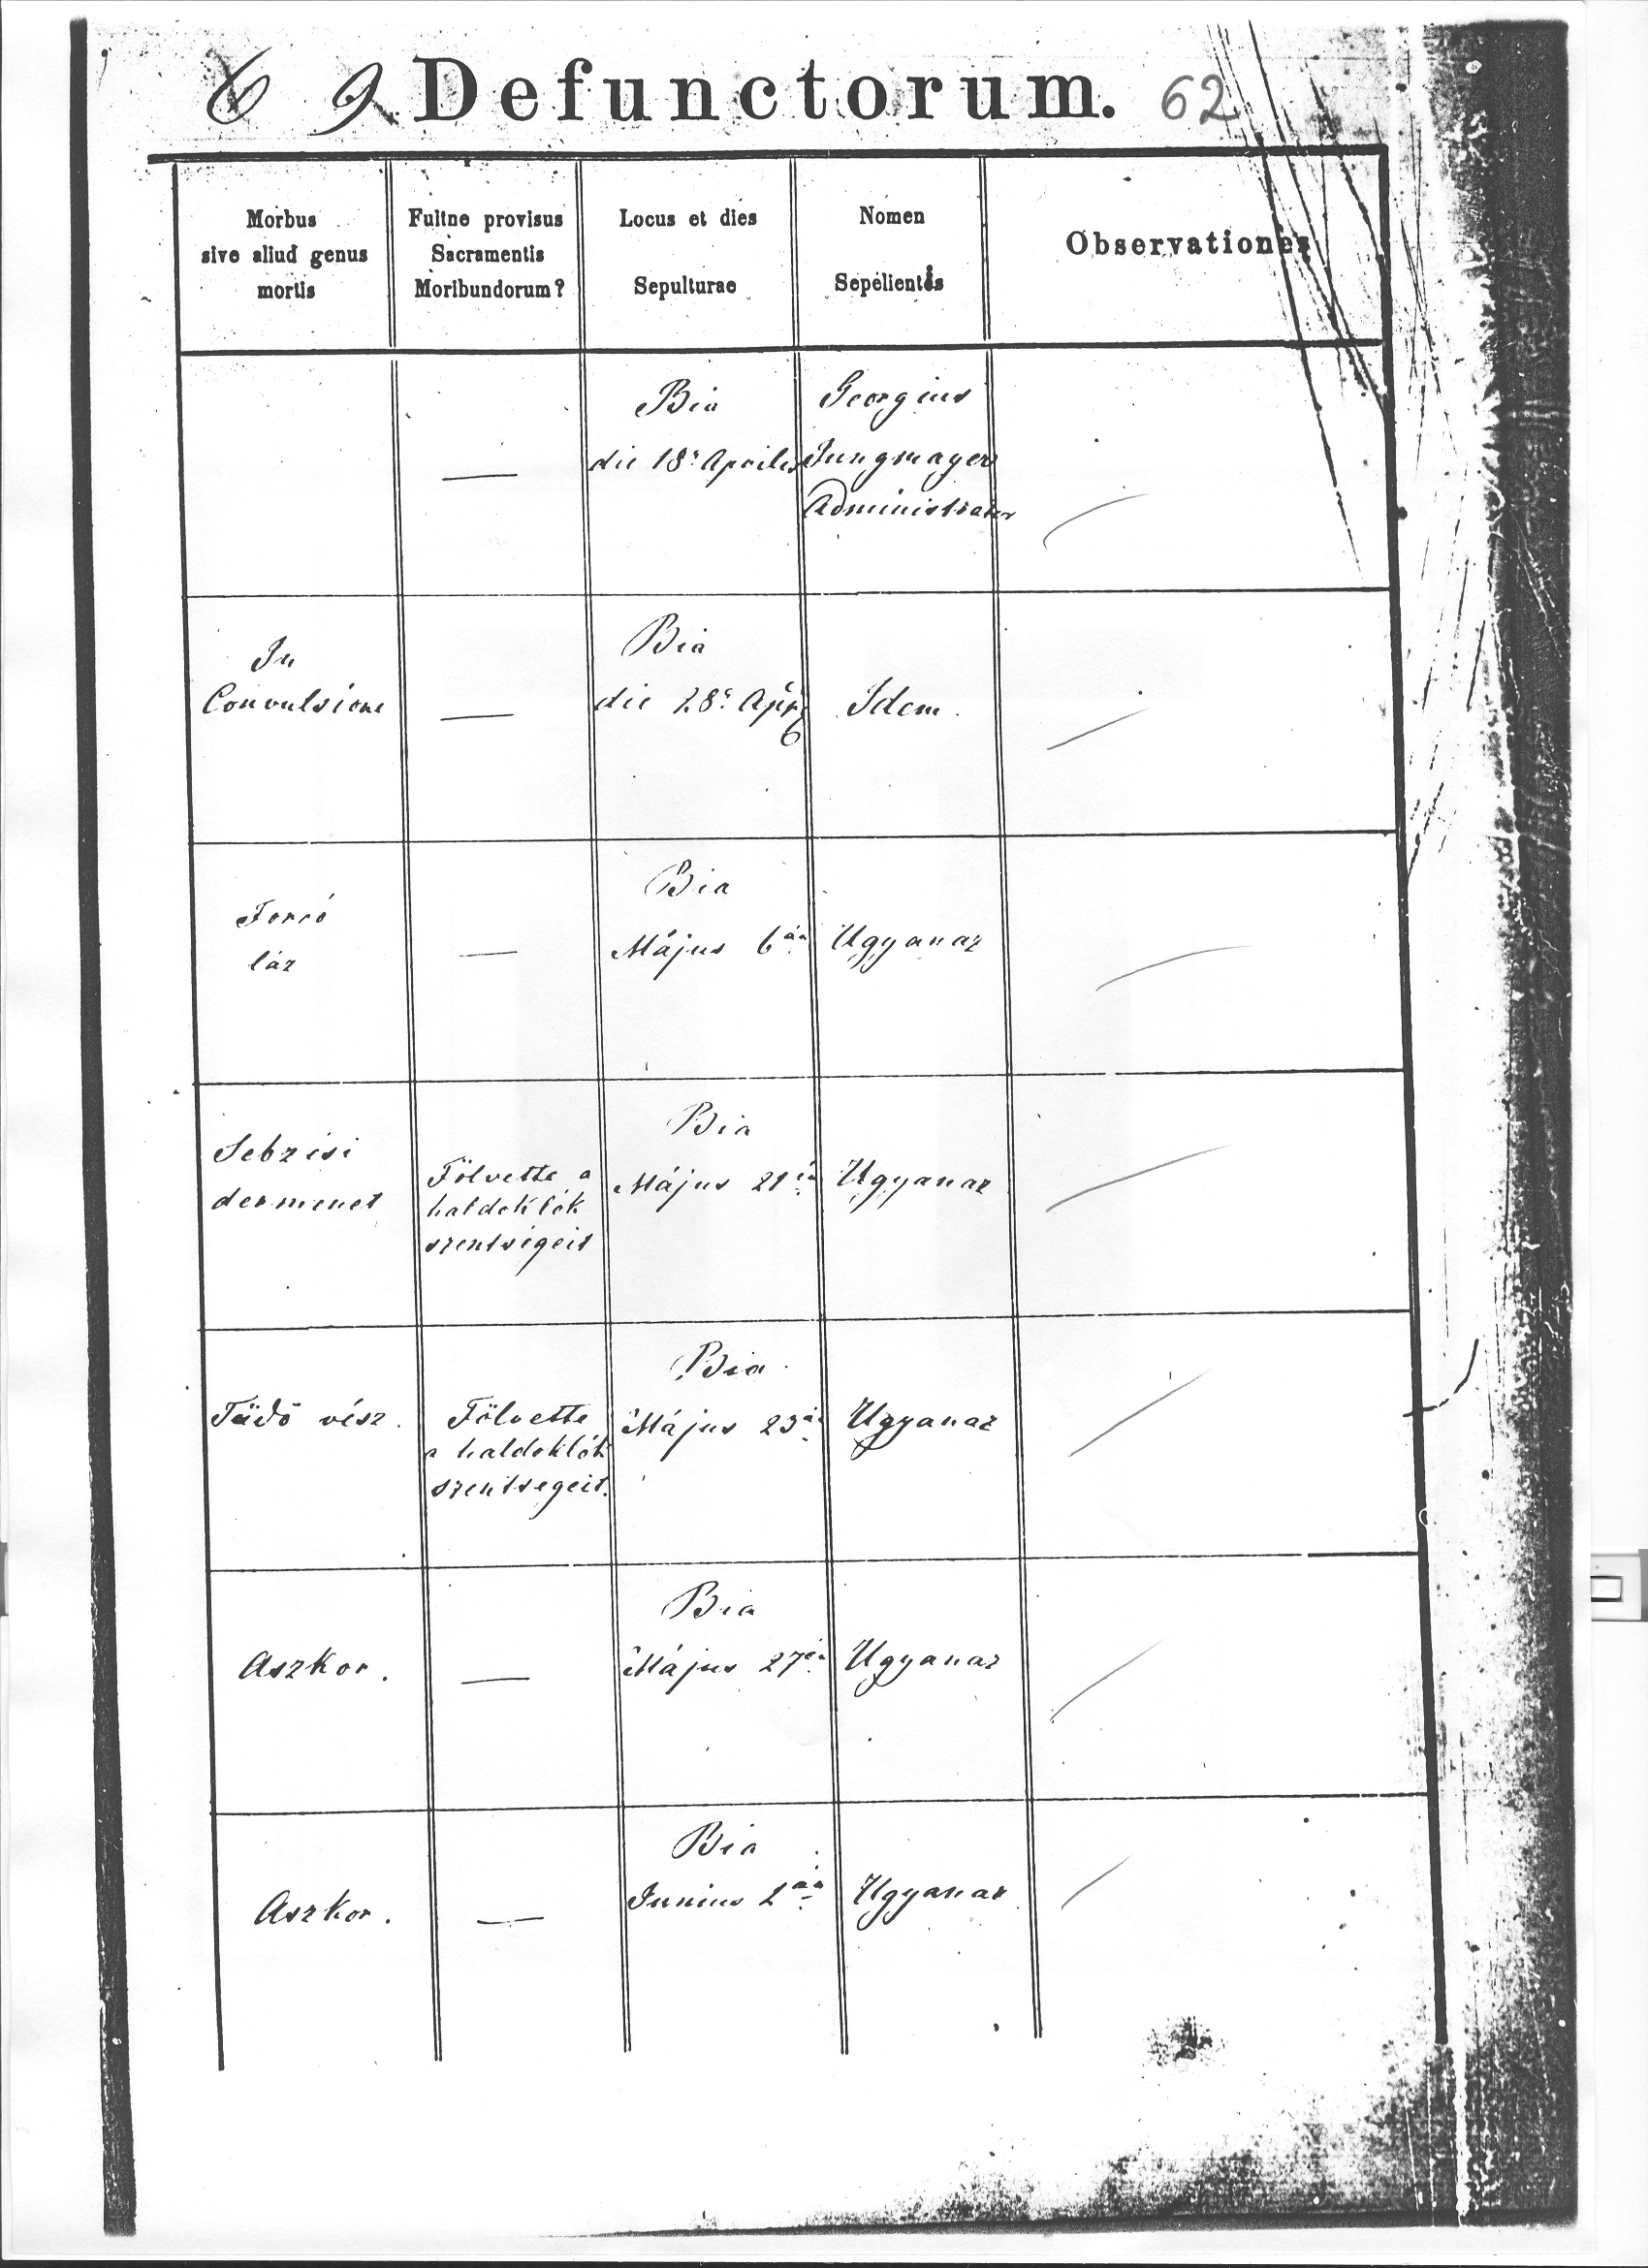 6 9 Defunctorum. 62
Morbus
sive aliud genus
mortis
Fuitne provisus
Sacramentis
Moribundorum?
Locus et dies
Sepulturae
Nomen
Sepelientis
Observationes
Bia
die 18a Aprilis
Georgius
Jungmayer
Administrator
In
Convulsione
—
Bia
die 28a Apr
Idem.
Forró
láz
—
Bia
Május 6án
Ugyanaz
Sebzési
dermenet
Fölvette a
haldoklók
szentségeit
Bia
Május 21én
Ugyanaz
Tüdő vész.
Fölvette
a haldoklók
szentségeit.
Bia
Május 23án
Ugyanaz
Aszkor.
—
Bia
Május 27én
Ugyanaz
Aszkor.
—
Bia
Junius 2án
Ugyanaz